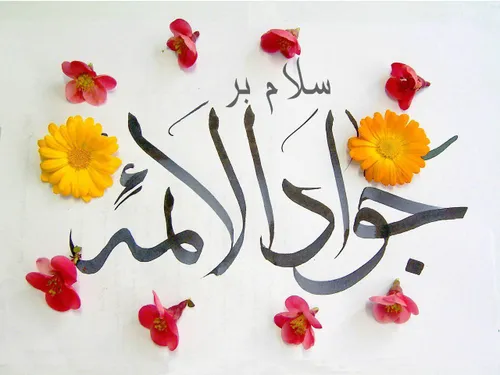 سلام بر
جواد الائمه